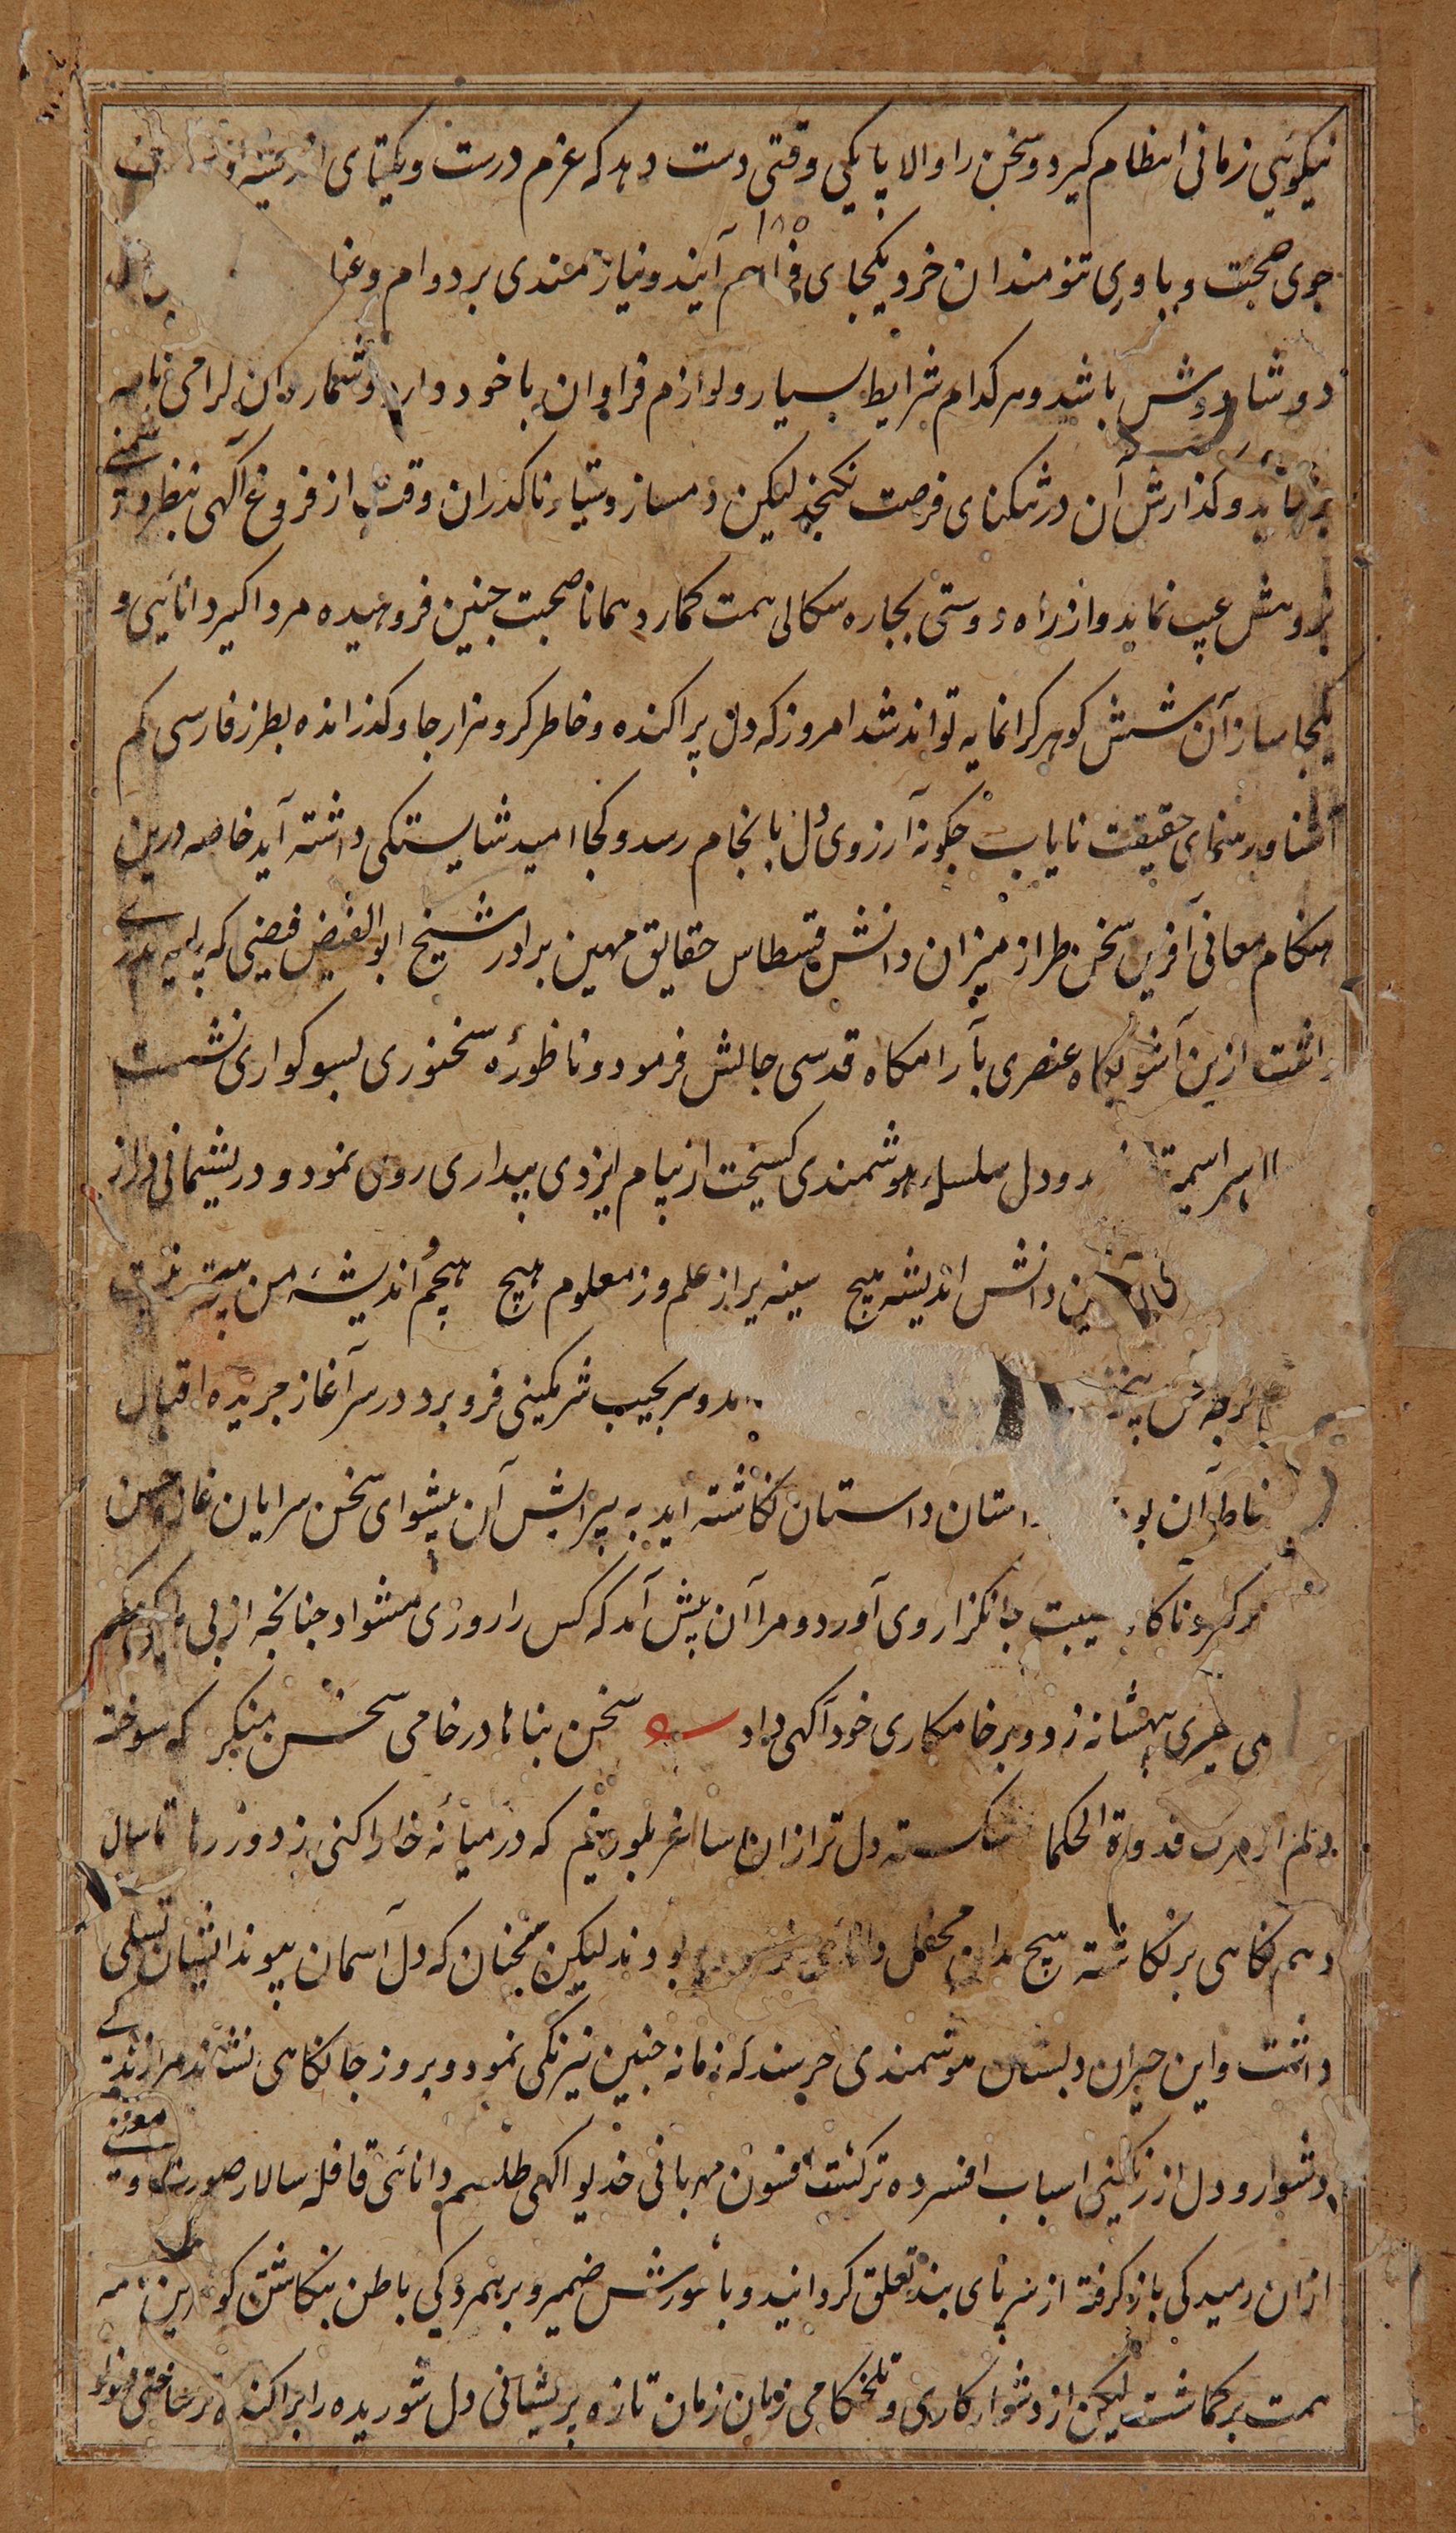 نیکویی زمانی انتظام گیرد و سخن را والا پایگی وقتی دست دهد که عزم درست و یکتای
۱۸۵
جوی صحبت و یاوری تنومندان خرد یکجای فراهم آیند و نیازمندی بر دوام و غنا
دوشادوش باشد و هر کدام شرایط بسیار و لوازم فراوان با خود دارد و شماره آن گرامی نامه
برنتابد و گذارش آن در تنگنای فرصت نگنجد لیکن دمساز و ستیاء ناگذران وقت از فروغ آگهی بنظر
پژوهش عیب نماید و از راه دوستی بچاره سگالی همت گمارد همانا صحبت چنین فروهیده مرد اکسیر دانایی و
یکجا ساز آن شش گوهر گرانمایه تواند شد امروز که دل پراگنده و خاطر گرو هزار جا و گذرانده بطرز فارسی کم
آشنا و رهنمای حقیقت نایاب چگونه آرزوی دل بانجام رسد و کجا امید شایستگی داشته آید خاصه درین
هنگام معانی آفرین سخن طراز میزان دانش قسطاس حقایق مهین برادر شیخ ابو الفیض فیضی که پایه پدری
داشت ازین آشوبگاه عنصری بآرامگاه قدسی چالش فرمود و ناظوره سخنوری بسوگواری نشست
سراسیمه و دل سلسله هوشمندی گسیخت از پیام ایزدی بیداری روی نمود و در پشیمانی دراز
ین دانش اندیشه هیچ سینه پر از علم و ز معلوم هیچ هیچم اندیشه من
د و سر بجیب شرمگینی فرو برد در سرآغاز جریده اقبال
ناطر آن بو استان داستان نگاشته آید به پیرایش آن پیشوای سخن سرایان
ناکا حبیبت جانگزا روی آورد و مرا آن پیش آمد که کس را روزی مشواد چنانچه از بی
می شانه زد و بر خامکاری خود آگهی داد سخن پناها در خامی سخن منگر که سوخته
دلم از مرگ قدوة الحکما شکسته دل تر از آن ساغر بلورینم که در میانه خارا کنی ز دور رها تا سال
دهم نگاهی بر نگاشته هیچ مدان محفل دانایی بودند لیکن نچنان که دل آسمان پیوند ایشان تسلی
داشت و این حیران دبستان هوشمندی خرسند که زمانه چنین نیرنگی نمود و بروز جانکاهی نشاند مرا زندگی
دشوار و دل از رنگینی اسباب افسرده تر گشت افسون مهربانی خدیو آگهی طلسم دانائی قافله سالار صورت و معنی
از آن رمیدگی باز گرفته از سر پای بند تعلق گردانید و با شورش ضمیر و برهمزدگی باطن بنگاشتن گوهرین نامه
همت برگماشت لیکن از دشوار کاری و تلخکامی زمان زمان تازه پریشانی دل شوریده را پراگنده تر ساختی